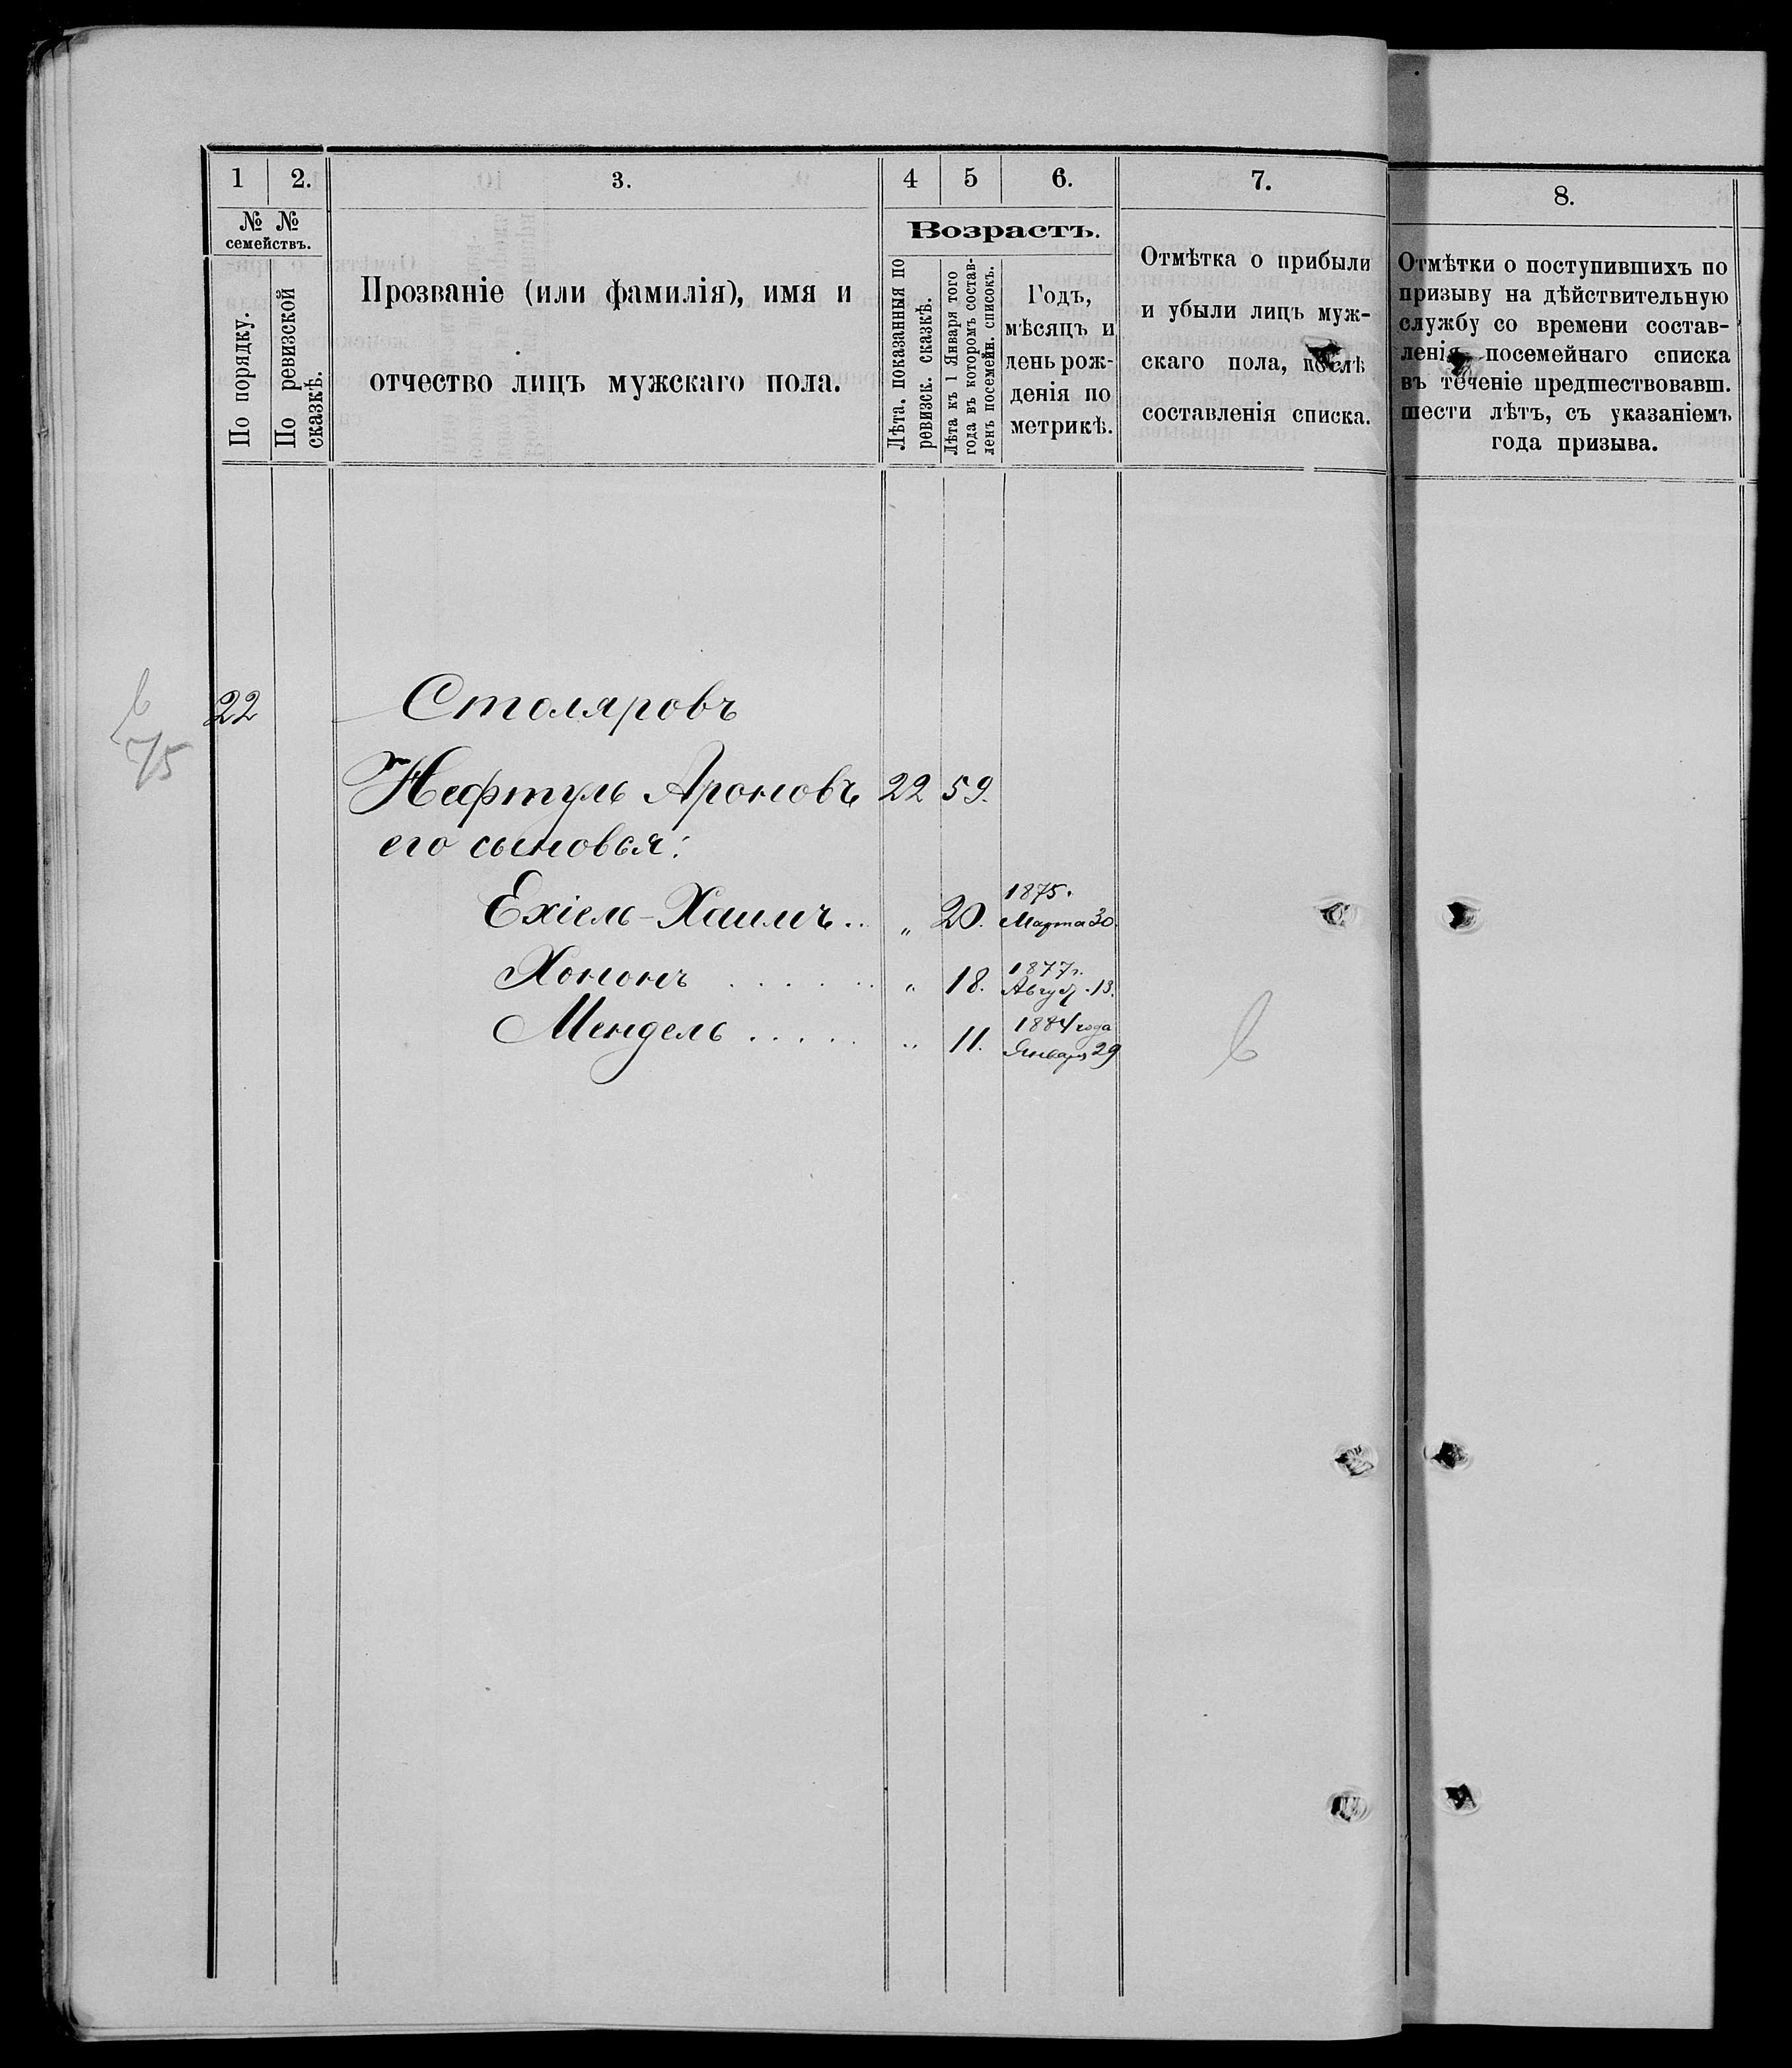 1
2.
3.
4
5
6.
7.
8.
№ №
семействъ.
По порядку.
По ревизской
сказкѣ.
Прозваніе (или фамилія), имя и
отчество лицъ мужскаго пола.
Возрастъ.
Лѣта, показанныя по
ревизск. сказкѣ.
Лѣта къ 1 Января того
года въ которомъ состав-
ленъ посемейн. списокъ.
Годъ,
мѣсяцъ и
день рож-
денія по
метрикѣ.
Отмѣтка о прибыли
и убыли лицъ муж-
скаго пола, послѣ
составленія списка.
Отмѣтки о поступившихъ по
призыву на дѣйствительную
службу со времени состав-
ленія посемейнаго списка
въ теченіе предшествовавш.
шести лѣтъ, съ указаніемъ
года призыва.
22 Столяровъ
75
Нефтуль Ароновъ 22 59.
его сыновья:
Ехіель-Хаимъ .. „ 20. 1875.
Марта 30.
Хононъ . . . . . . „ 18. 1877г.
Август. 13.
Мендель . . . . . „ 11. 1884 года
Января 29